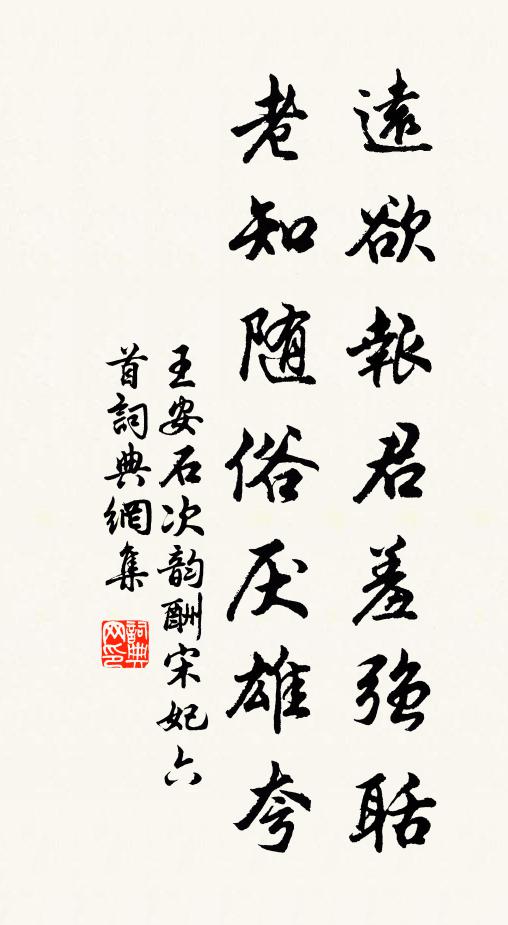 遠欲報君羞強聒
老知随俗厌雄夸
王安石次韵酬宋妃六
首詞典網集
詞典网印